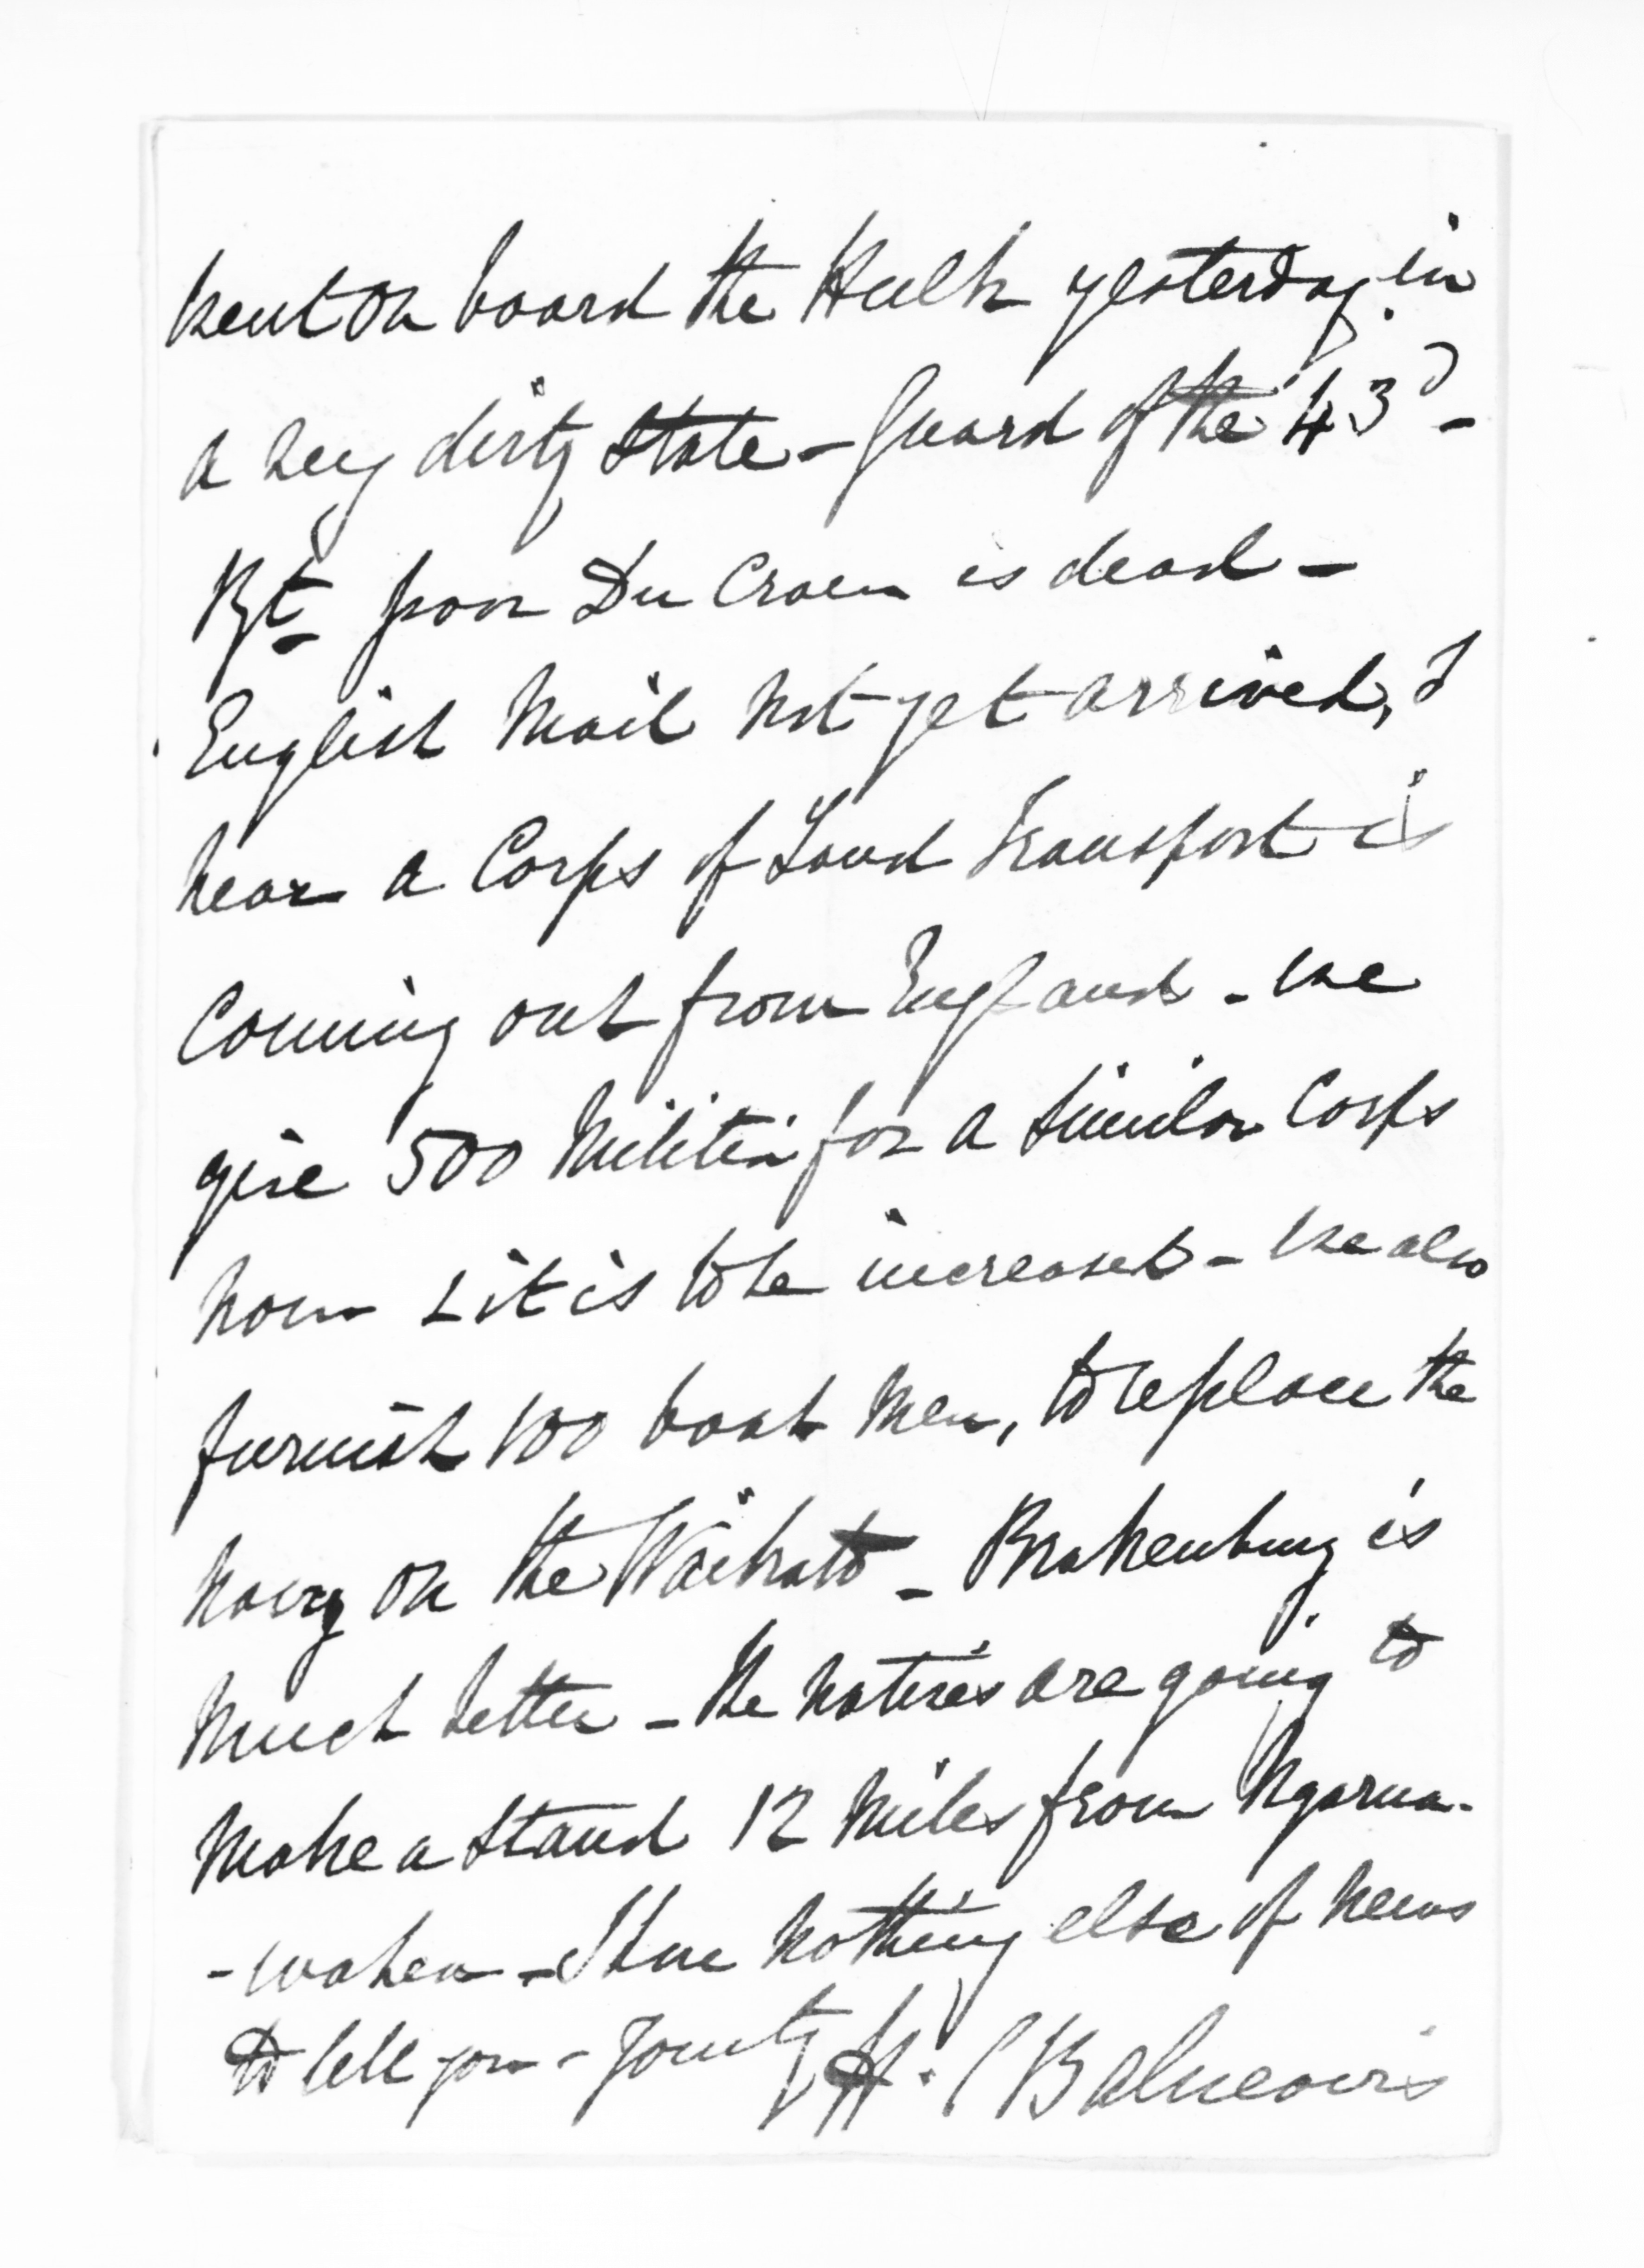 went on board the Hulk yesterday in
a very dirty state - Guard of the 43d -
Rgt poor Du Craen is dead -
English Mail not yet arrived, I
hear a Corps of Land Transport is
Coming out from England - we
give 500 Militia for a similar Corps
now & it is to be increased - We also
furnish 100 boat men, to replace the
navy on the Waikato - Brakenburg is
much better - the natives are going to
make a stand 12 miles from Ngarua-
-wahea - I have nothing else of news
to tell you - Yours ty H. C Balneavis